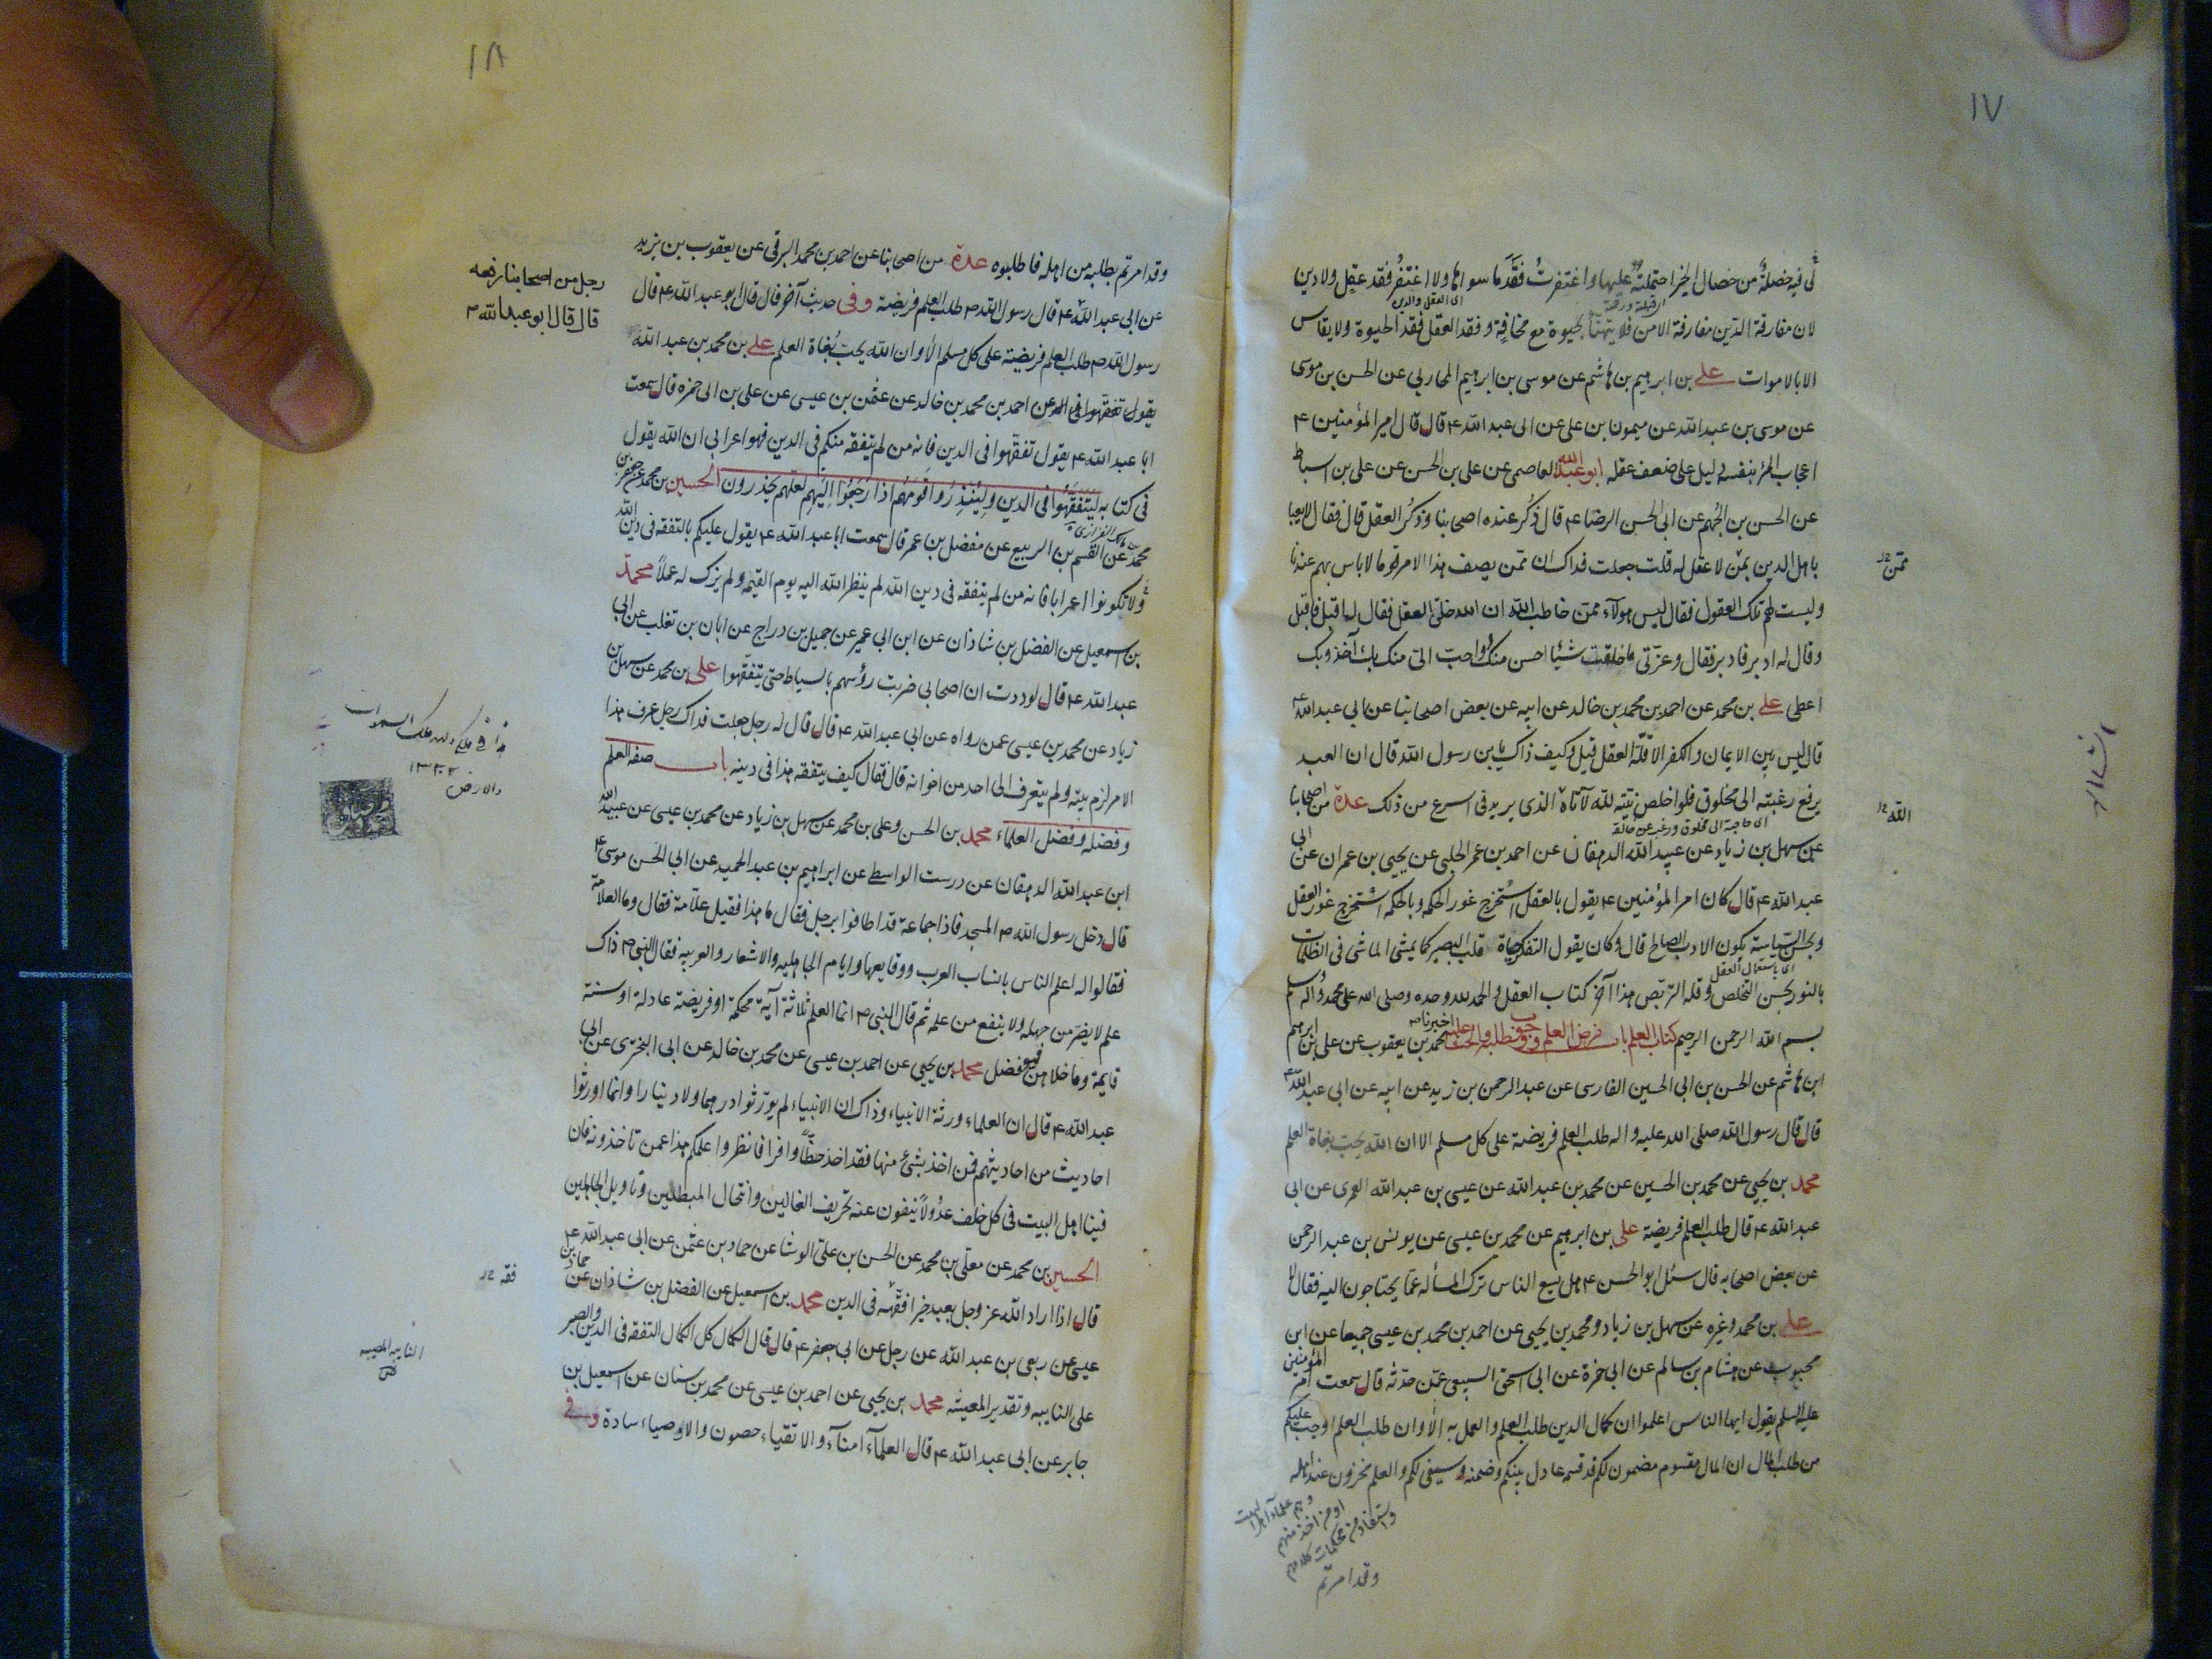 ١٧
لى فيه خصلة من خصال الخير احتملته عليها واغتفرت فقد ما سواها ولا اغتفر فقد عقل ولا دين
لان مفارقة الدين مفارقة الامن فلا يتهنأ بحيوة مع مخافة وفقد العقل فقد الحيوة ولا يقاس
الا بالاموات على بن ابرهيم بن هاشم عن موسى بن ابرهيم المحاربى عن الحسن بن موسى
عن موسى بن عبد الله عن ميمون بن على عن ابى عبد الله ع قال قال امير المؤمنين ع
اعجاب المرء بنفسه دليل على ضعف عقله ابو عبد الله العاصمى عن على بن الحسن عن على بن اسباط
عن الحسن بن الجهم عن ابى الحسن الرضا ع قال ذكر عنده اصحابنا وذكر العقل قال فقال لا يعبا
باهل الدين بمن لا عقل له قلت جعلت فداك ان ممن يصف هذا الامر قوما لا باس بهم عندنا
وليست لهم تلك العقول فقال ليس هولاء ممن خاطب الله ان الله خلق العقل فقال له اقبل فاقبل
وقال له ادبر فادبر فقال وعزتى ما خلقت شيئا احسن منك او احب الى منك بك آخذ وبك
اعطى على بن محمد عن احمد بن محمد بن خالد عن ابيه عن بعض اصحابنا عن ابى عبد الله ع
قال ليس بين الايمان والكفر الا قلة العقل قيل وكيف ذاك يا بن رسول الله قال ان العبد
يرفع رغبته الى مخلوق فلو اخلص نيته لله لآتاه الذى يريد فى اسرع من ذلك عدة من اصحابنا
عن سهل بن زياد عن عبيد الله الدهقان عن احمد بن عمر الحلبى عن يحيى بن عمران عن ابى
عبد الله ع قال كان امير المؤمنين ع يقول بالعقل استخرج غور الحكمة وبالحكمة استخرج غور العقل
وبحسن السياسة يكون الادب الصالح قال وكان يقول التفكر حياة قلب البصير كما يمشى الماشى فى الظلمات
بالنور بحسن التخلص وقلة التربص هذا آخر كتاب العقل والحمد لله وحده وصلى الله على محمد وآله وسلم
بسم الله الرحمن الرحيم كتاب العلم باب فرض العلم ووجوب طلبه والحث عليه اخبرنا محمد بن يعقوب عن على بن ابرهيم
ابن هاشم عن الحسن بن ابى الحسين الفارسى عن عبد الرحمن بن زيد عن ابيه عن ابى عبد الله ع
قال قال رسول الله صلى الله عليه واله طلب العلم فريضة على كل مسلم الا ان الله يحب بغاة العلم
محمد بن يحيى عن محمد بن الحسين عن محمد بن عبد الله عن عيسى بن عبد الله العمرى عن ابى
عبد الله ع قال طلب العلم فريضة على بن ابرهيم عن محمد بن عيسى عن يونس بن عبد الرحمن
عن بعض اصحابه قال سئل ابو الحسن ع هل يسع الناس ترك المسألة عما يحتاجون اليه فقال لا
على بن محمد وغيره عن سهل بن زياد ومحمد بن يحيى عن احمد بن محمد بن عيسى جميعا عن ابن
محبوب عن هشام بن سالم عن ابى حمزة عن ابى اسحق السبيعى عمن حدثه قال سمعت امير المؤمنين
عليه السلم يقول ايها الناس اعلموا ان كمال الدين طلب العلم والعمل به الا وان طلب العلم اوجب عليكم
من طلب المال ان المال مقسوم مضمون لكم قد قسمه عادل بينكم وضمنه وسيفى لكم والعلم مخزون عند اهله
وقد امرتم
١٨
وقد امرتم بطلبه من اهله فاطلبوه عدة من اصحابنا عن احمد بن محمد البرقى عن يعقوب بن يزيد
رجل من اصحابنا رفعه
قال قال ابو عبد الله ع
عن ابى عبد الله ع قال رسول الله ص طلب العلم فريضة وفى حديث آخر قال قال ابو عبد الله ع قال
رسول الله ص طلب العلم فريضة على كل مسلم الا وان الله يحب بغاة العلم على بن محمد بن عبد الله
عن احمد بن محمد بن خالد عن عثمن بن عيسى عن على بن ابى حمزه قال سمعت
ابا عبد الله ع يقول تفقهوا فى الدين فانه من لم يتفقه منكم فى الدين فهو اعرابى ان الله يقول
فى كتابه ليتفقهوا فى الدين ولينذروا قومهم اذا رجعوا اليهم لعلهم يحذرون الحسين بن محمد عن جعفر بن
محمد عن القسم بن الربيع عن مفضل بن عمر قال سمعت ابا عبد الله ع يقول عليكم بالتفقه فى دين الله
ولا تكونوا اعرابا فانه من لم يتفقه فى دين الله لم ينظر الله اليه يوم القيمه ولم يزك له عملا محمد
بن اسمعيل عن الفضل بن شاذان عن ابن ابى عمير عن جميل بن دراج عن ابان بن تغلب عن ابى
عبد الله ع قال لوددت ان اصحابى ضربت رؤسهم بالسياط حتى يتفقهوا على بن محمد عن سهل بن
زياد عن محمد بن عيسى عمن رواه عن ابى عبد الله ع قال قال له رجل جعلت فداك رجل عرف هذا
الامر لزم بيته ولم يتعرف الى احد من اخوانه قال فقال كيف يتفقه هذا فى دينه باب صفة العلم
وفضله وفضل العلماء محمد بن الحسن وعلى بن محمد عن سهل بن زياد عن محمد بن عيسى عن عبيد الله
ابن عبد الله الدهقان عن درست الواسطى عن ابراهيم بن عبد الحميد عن ابى الحسن موسى ع
قال دخل رسول الله ص المسجد فاذا جماعة قد اطافوا برجل فقال ما هذا فقيل علامة فقال وما العلامة
فقالوا له اعلم الناس بانساب العرب ووقايعها وايام الجاهليه والاشعار والعربيه فقال النبى ص ذاك
علم لا يضر من جهله ولا ينفع من علمه ثم قال النبى ص انما العلم ثلاثة آية محكمة او فريضة عادلة او سنة
قايمة وما خلاهن فهو فضل محمد بن يحيى عن احمد بن عيسى عن محمد بن خالد عن ابى البخترى عن ابى
عبد الله ع قال ان العلماء ورثة الانبياء وذاك ان الانبياء لم يورثوا درهما ولا دينارا وانما اورثوا
احاديث من احاديثهم فمن اخذ بشئ منها فقد اخذ حظا وافرا فانظروا علمكم هذا عمن تاخذونه فان
فينا اهل البيت فى كل خلف عدولا ينفون عنه تحريف الغالين وانتحال المبطلين وتاويل الجاهلين
الحسين بن محمد عن معلى بن محمد عن الحسن بن على الوشا عن حماد بن عثمن عن ابى عبد الله ع
قال اذا اراد الله عز وجل بعبد خيرا فقهه فى الدين محمد بن اسمعيل عن الفضل بن شاذان عن حماد بن
عيسى عن ربعى بن عبد الله عن رجل عن ابى جعفر ع قال قال الكمال كل الكمال التفقه فى الدين والصبر
على النايبه وتقدير المعيشه محمد بن يحيى عن احمد بن عيسى عن محمد بن سنان عن اسمعيل بن
جابر عن ابى عبد الله ع قال العلماء امناء والاتقياء حصون والاوصياء سادة وفى